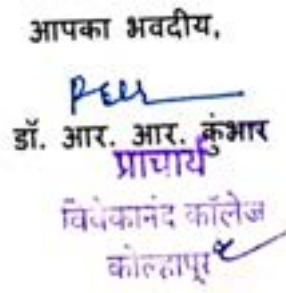 आपका भवदीय,
डॉ. आर. आर. कुंभार
प्राचार्य
विवेकानंद कॉलेज
कोल्हापूर